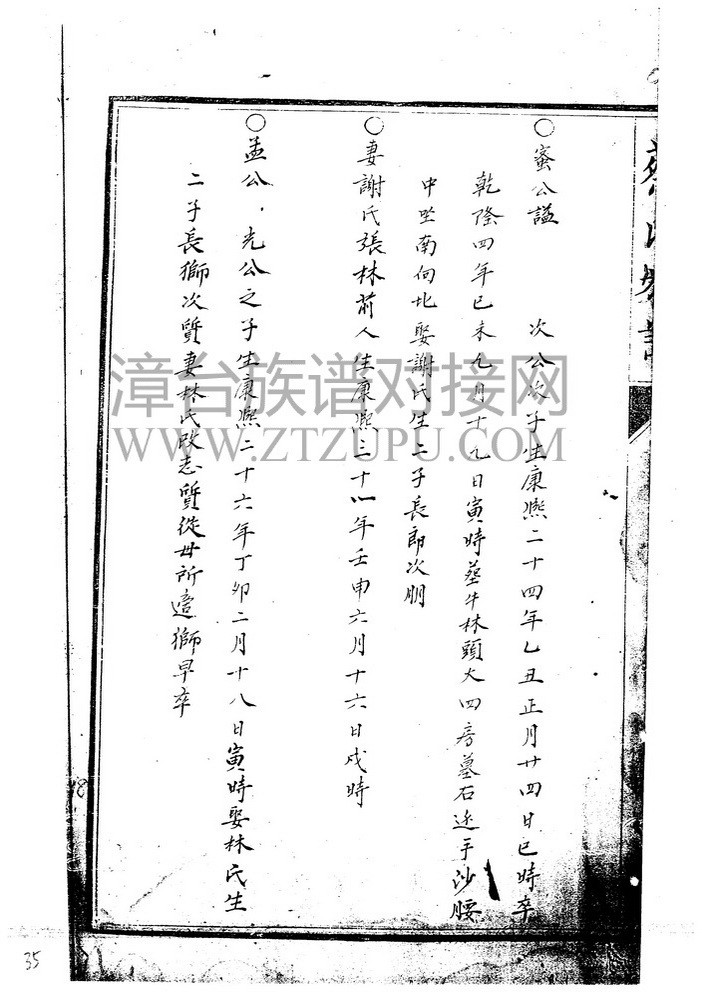 ○蜜公諡　次公次子生康熙二十四年乙丑正月廿四日巳時卒
乾隆四年己未九月十九日寅時葬牛林頭大四房墓石迄手沙腰
中坐南向北娶謝氏生二子長郎次朋
○妻謝氏張林前人生康熙三十一年壬申六月十六日戌時
○孟公．光公之子生康熙二十六年丁卯二月十八日寅時娶林氏生
二子長獅次質妻林氏改志質從母所適獅早卒
漳台族谱对接网
WWW.ZTZUPU.COM
35